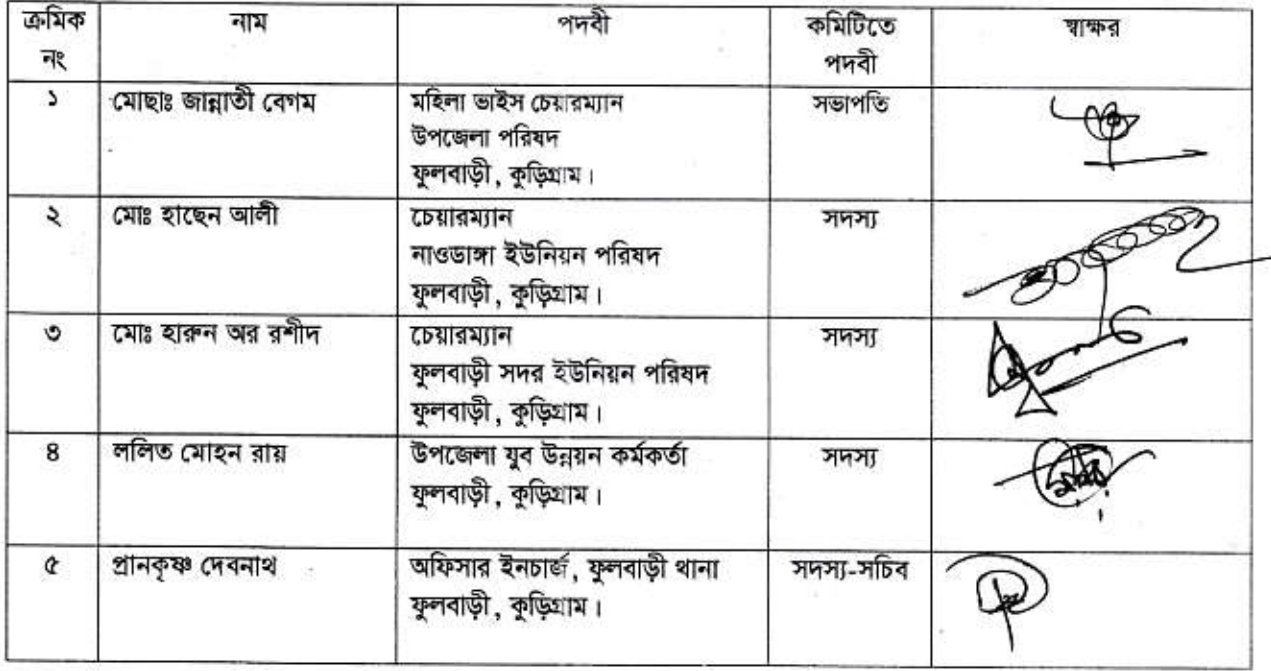 ক্রমিক নং নাম পদবী কমিটিতে পদবী স্বাক্ষর
১ মোছাঃ জান্নাতী বেগম মহিলা ভাইস চেয়ারম্যান সভাপতি
উপজেলা পরিষদ
ফুলবাড়ী, কুড়িগ্রাম।
২ মোঃ হাছেন আলী চেয়ারম্যান সদস্য
নাওডাঙ্গা ইউনিয়ন পরিষদ
ফুলবাড়ী, কুড়িগ্রাম।
৩ মোঃ হারুন অর রশীদ চেয়ারম্যান সদস্য
ফুলবাড়ী সদর ইউনিয়ন পরিষদ
ফুলবাড়ী, কুড়িগ্রাম।
৪ ললিত মোহন রায় উপজেলা যুব উন্নয়ন কর্মকর্তা সদস্য
ফুলবাড়ী, কুড়িগ্রাম।
৫ প্রানকৃষ্ণ দেবনাথ অফিসার ইনচার্জ, ফুলবাড়ী থানা সদস্য-সচিব
ফুলবাড়ী, কুড়িগ্রাম।